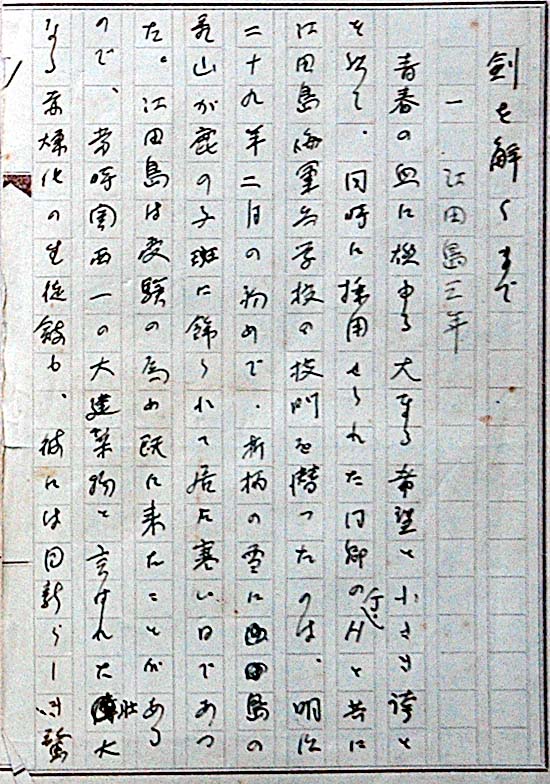 剣を解くまで
一 江田島三年
青春の血に燃ゆる大なる希望と小さき誇と
を抱て、同時に採用せられた同郷のHと共に
江田島海軍兵学校の校門を潜つたのは、明治
二十九年二月の初めで、折柄の雪に江田島の
山が鹿の子斑に飾られて居た寒い日であつ
た。江田島は受験の為め既に来たことがある
ので、当時関西一の大建築物と言はれた壮大
なる赤煉化の生徒館も、彼には目新らしい驚